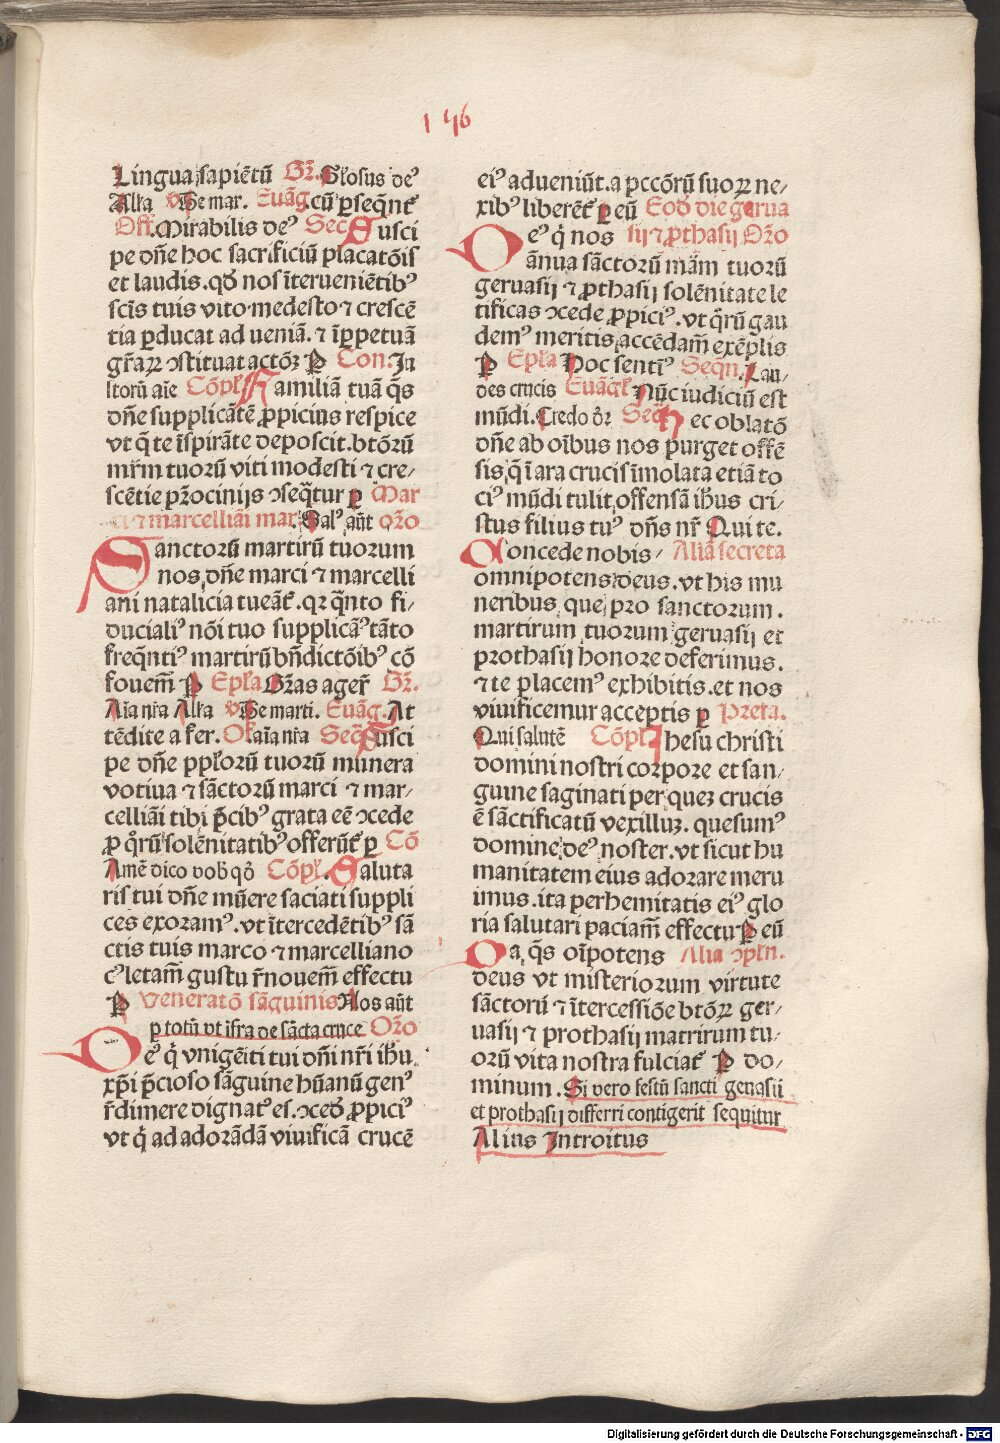 1 46
Lingua sapiētū Gr̄. Gl'osus deꝰ
Allr̄a v̄ Te mar. Euāg cū ꝑseqn̄t᷒
Off. Mirabilis deꝰ Sec̄ Susci
pe dn̄e hoc sacrificiū placatōis
et laudis. qđ nos īterueniētibꝰ
scīs tuis vito·medesto·⁊ crescē
tia ꝑducat ad veniā. ⁊ īꝑpetuā
gr̄aꝝ ꝯstituat actōꝝ P Con. Iu
stoꝝ aīe Cōpl' Familiā tuā q̄s
dn̄e supplicātē ꝓpicius respice
vt q̄ te īspirāte deposcit. btōrū
mr̄m tuorū viti modesti ⁊ cre⸗
scētie pr̄ociniis ꝯseq̄tur ꝑ Mar
ci ⁊ marcelliāi mar. Salꝰ aūt or̄o
Sanctorū martirū tuorum
nos dn̄e marci ⁊ marcelli
ani natalicia tueāt᷒. qꝛ q̄nto fi⸗
ducialiꝰ nōi tuo supplicāꝰ tāto
freq̄ntiꝰ martirū bn̄dictōibꝰ cō
fouem̄ P Epl'a Gr̄as ager̄ Gr̄.
Aīa nr̄a Allr̄a v̄ Te marti. Euāg. At
tēdite a fer. Of. aīa nr̄a Sec̄ Susci
pe dn̄e ppl'orū tuorū munera
votiua ⁊ sāctorū marci ⁊ mar⸗
celliāi tibi p̄cibꝰ grata eē ꝯcede
ꝓ q̊rū solēnitatibꝰ offerūt᷒ ꝑ Cō
Amē dico vob̄ qđ Cōpl'. Saluta
ris tui dn̄e mūere saciati suppli
ces exoramꝰ. vt ītercedētibꝰ sā
ctis tuis marco ⁊ marcelliano
cꝰ letam̄ gustu r̄nouem̄ effectu
P Veneratō sāguinis Nos aūt
ꝑ totū vt īfra de sācta cruce Or̄o
Deꝰ q̊ vnigēiti tui dn̄i nr̄i ihū
xp̄i p̄cioso sāguine hūanū genꝰ
r̄dimere dignatꝰ es. ꝯcedꝰ ꝓpiciꝰ
vt q̊ ad adorādā viuificā crucē
eiꝰ adueniūt. a pccōrū suoꝝ ne⸗
xibꝰ liberēt᷒ ꝑ eū Eod̄ die gerua
Deꝰ q̊ nos sij ⁊ ꝓthasij Or̄o
ānua sāctorū mām tuorū
geruasij ⁊ ꝓthasij solēnitate le
tificas ꝯcede ꝓpiciꝰ. vt q̊rū gau
demꝰ meritis accēdam̄ exēplis
P Epl'a Hoc sentiꝰ Seqn̄. Lau⸗
des crucis Euāgl' Nūc iudiciū est
mūdi. Credo ōr Sec̄ Hec oblatō
dn̄e ab oībus nos purget offē
sis, q̄ ī ara crucis īmolata etiā to
ciꝰ mūdi tulit offensā ihūs cri⸗
stus filius tuꝰ dn̄s nr̄ Qui te.
Concede nobis⸗ Alia secreta
omnipotens deus. vt his mu
neribus que pro sanctorum.
martirum tuorum geruasij et
prothasij honore deferimus.
⁊ te placemꝰ exhibitis. et nos
viuificemur acceptis ꝑ Prefa.
Qui salutē Cōpl' Ihesu christi
domini nostri corpore et san⸗
guine saginati per queꝫ crucis
ē sāctificatū vexilluꝫ. quesumꝰ
domine deꝰ noster. vt sicut hu
manitatem eius adorare meru
imus. ita perhemitatis eiꝰ glo
ria salutari paciam̄ effectu P eū
Da q̄s oīpotens Alia ꝯpln̄.
deus vt misteriorum virtute
sāctorū ⁊ ītercessiōe btōꝝ ger⸗
uasij ⁊ prothasij matrirum tu⸗
orū vita nostra fulciat᷒ P do⸗
minum. Si vero festū sancti geruasii
et prothasij differri contigerit sequitur
Alius Introitus
Digitalisierung gefördert durch die Deutsche Forschungsgemeinschaft - DFG